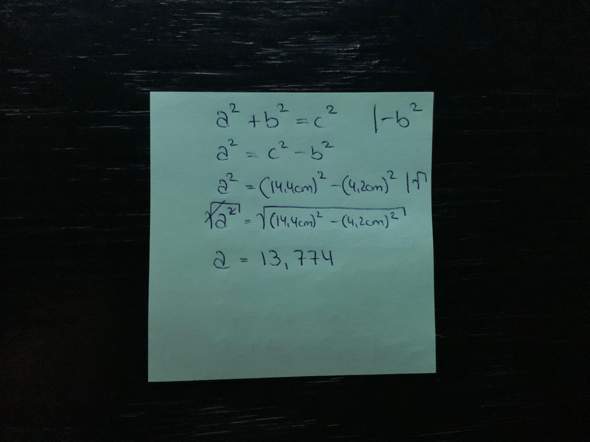 a² + b² = c² |-b²
a² = c² - b²
a² = (14,4cm)² - (4,2cm)² |√
√a² = √(14,4cm)² - (4,2cm)²
a = 13,774